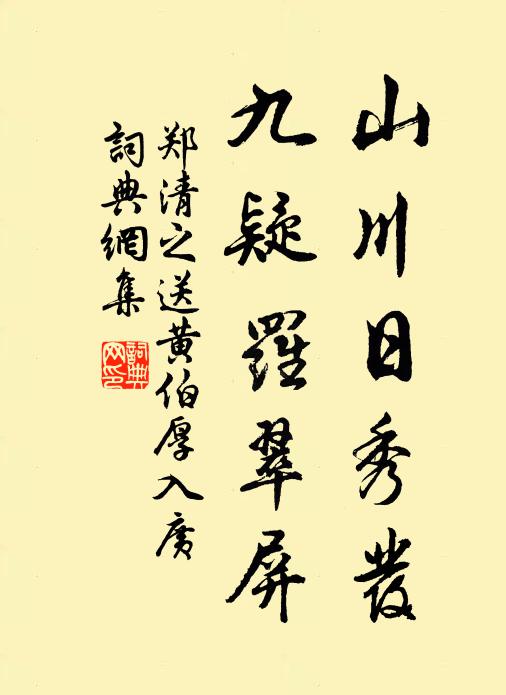 山川日秀發
九疑羅翠屏
郑清之送黄伯厚入廣
詞典網集
詞典
网印